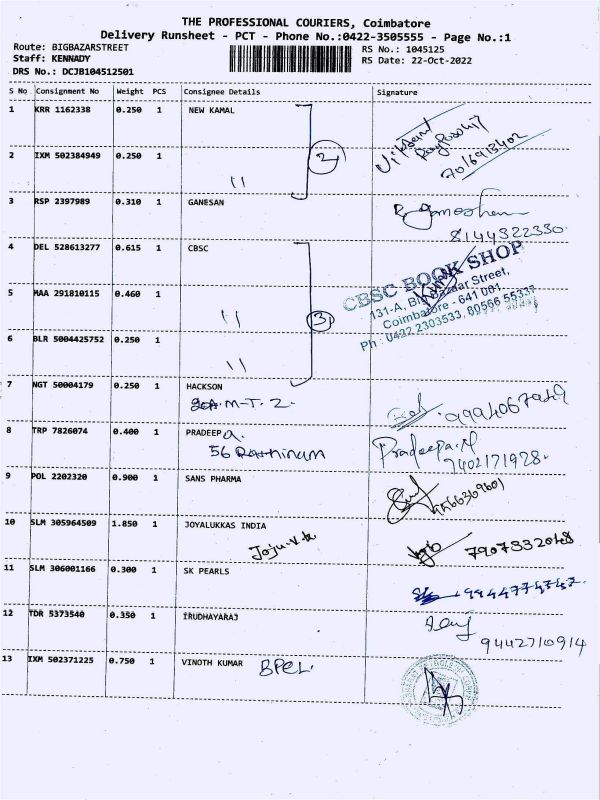 THE PROFESSIONAL COURIERS, Coimbatore
Delivery Runsheet - PCT - Phone No.:0422-3505555 - Page No.:1
Route: BIGBAZARSTREET
Staff: KENNADY
DRS No.: DCJB104512501
RS No.: 1045125
RS Date: 22-Oct-2022
S No Consignment No Weight PCS Consignee Details Signature
1 KRR 1162338 0.250 1 NEW KAMAL
7016913402
2 IXM 502384949 0.250 1 2
"
3 RSP 2397989 0.310 1 GANESAN
8144322330
4 DEL 528613277 0.615 1 CBSC
CBSC BOOK SHOP
131-A, Big Bazaar Street,
Coimbatore - 641 001.
Ph : 0422 2303533, 80566 55337
5 MAA 291810115 0.460 1
" 3
6 BLR 5004425752 0.250 1
"
7 NGT 50004179 0.250 1 HACKSON
M-T. Z.
8 TRP 7826074 0.400 1 PRADEEP a.
56 Rathinum
Pradeepa.N
7402171928.
9 POL 2202320 0.900 1 SANS PHARMA
10 SLM 305964509 1.850 1 JOYALUKKAS INDIA
Joju
11 SLM 306001166 0.300 1 SK PEARLS
12 TDR 5373540 0.350 1 IRUDHAYARAJ
9442710914
13 IXM 502371225 0.750 1 VINOTH KUMAR BPCL.